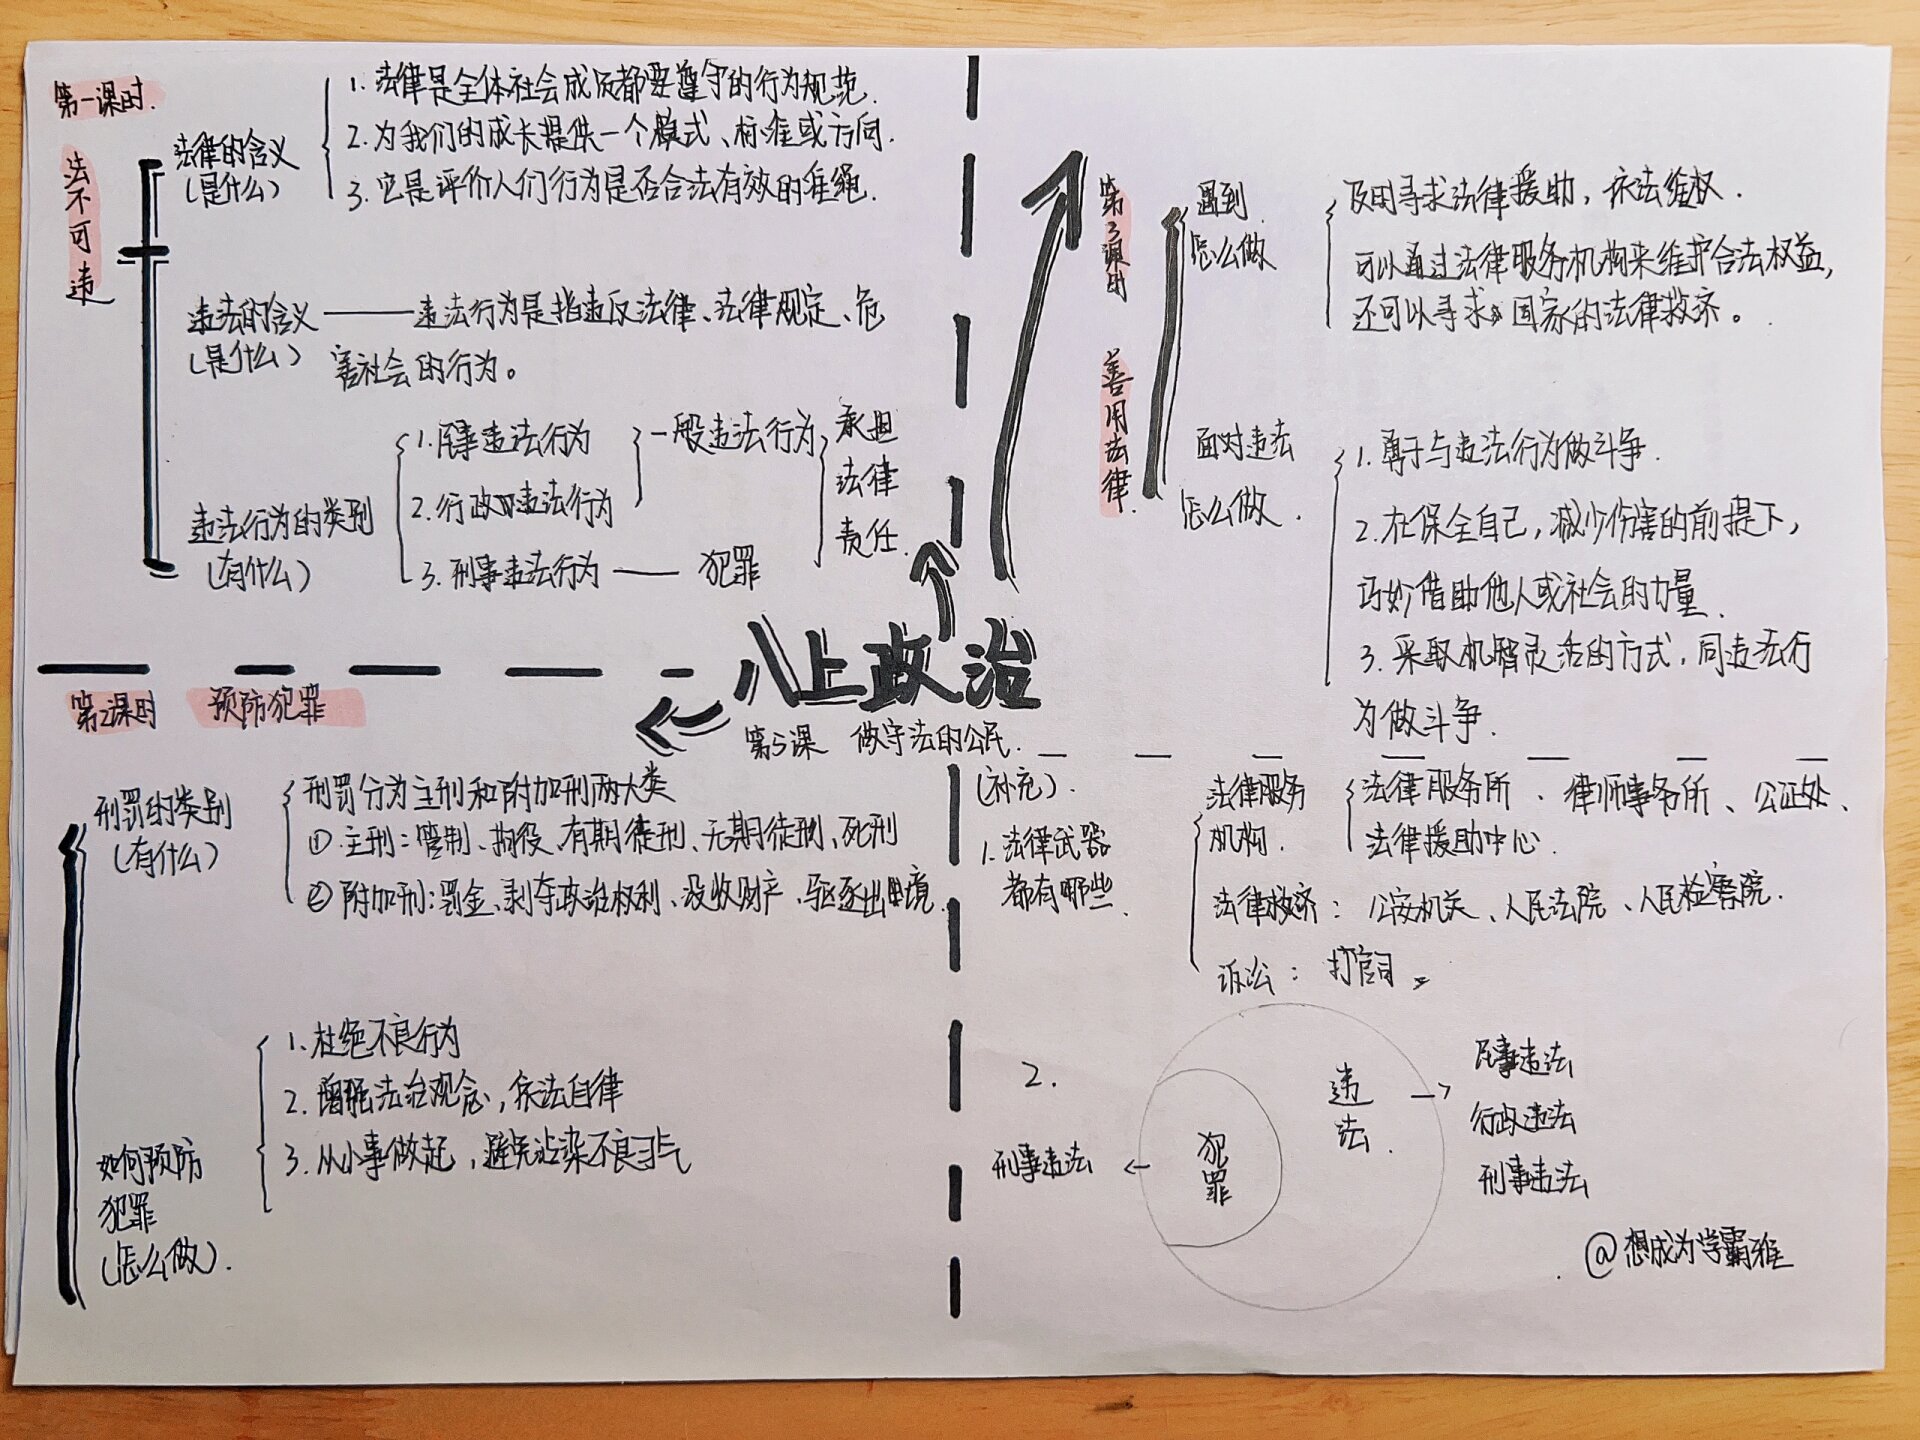 第一课时.
法不可违
法律的含义
(是什么)
1. 法律是全体社会成员都要遵守的行为规范.
2. 为我们的成长提供一个模式、标准或方向.
3. 它是评价人们行为是否合法有效的准绳.
违法的含义
(是什么)
违法行为是指违反法律、法律规定、危
害社会的行为。
违法行为的类别
(有什么)
1. 民事违法行为
2. 行政违法行为
3. 刑事违法行为
一般违法行为
犯罪
承担
法律
责任.
八上政治
第5课 做守法的公民.
第2课时 预防犯罪
刑罚的类别
(有什么)
刑罚分为主刑和附加刑两大类
① 主刑:管制、拘役、有期徒刑、无期徒刑、死刑
② 附加刑:罚金、剥夺政治权利、没收财产、驱逐出境.
如何预防
犯罪
(怎么做).
1. 杜绝不良行为
2. 增强法治观念,依法自律
3. 从小事做起,避免沾染不良习气
第3课时 善用法律.
遇到
怎么做
及时寻求法律援助,依法维权.
可以通过法律服务机构来维护合法权益,
还可以寻求国家的法律救济。
面对违法
怎么做.
1. 勇于与违法行为做斗争.
2. 在保全自己,减少伤害的前提下,
巧妙借助他人或社会的力量.
3. 采取机智灵活的方式,同违法行
为做斗争.
(补充).
1. 法律武器
都有哪些.
法律服务
机构.
法律服务所、律师事务所、公证处、
法律援助中心.
法律救济: 公安机关、人民法院、人民检察院.
诉讼: 打官司。
2.
刑事违法 ←
犯罪
违法.
→ 民事违法
行政违法
刑事违法
@想成为学霸雅